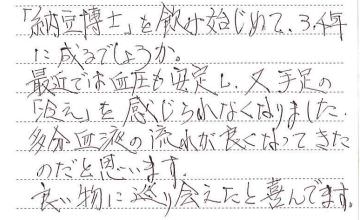 「納豆博士」を飲み始じめて、3、4年
に成るでしょうか。
最近では血圧も安定し、又手足の
「冷え」を感じられなくなりました。
多分血液の流れが良くなってきた
のだと思います。
良い物に巡り会えたと喜んでます。